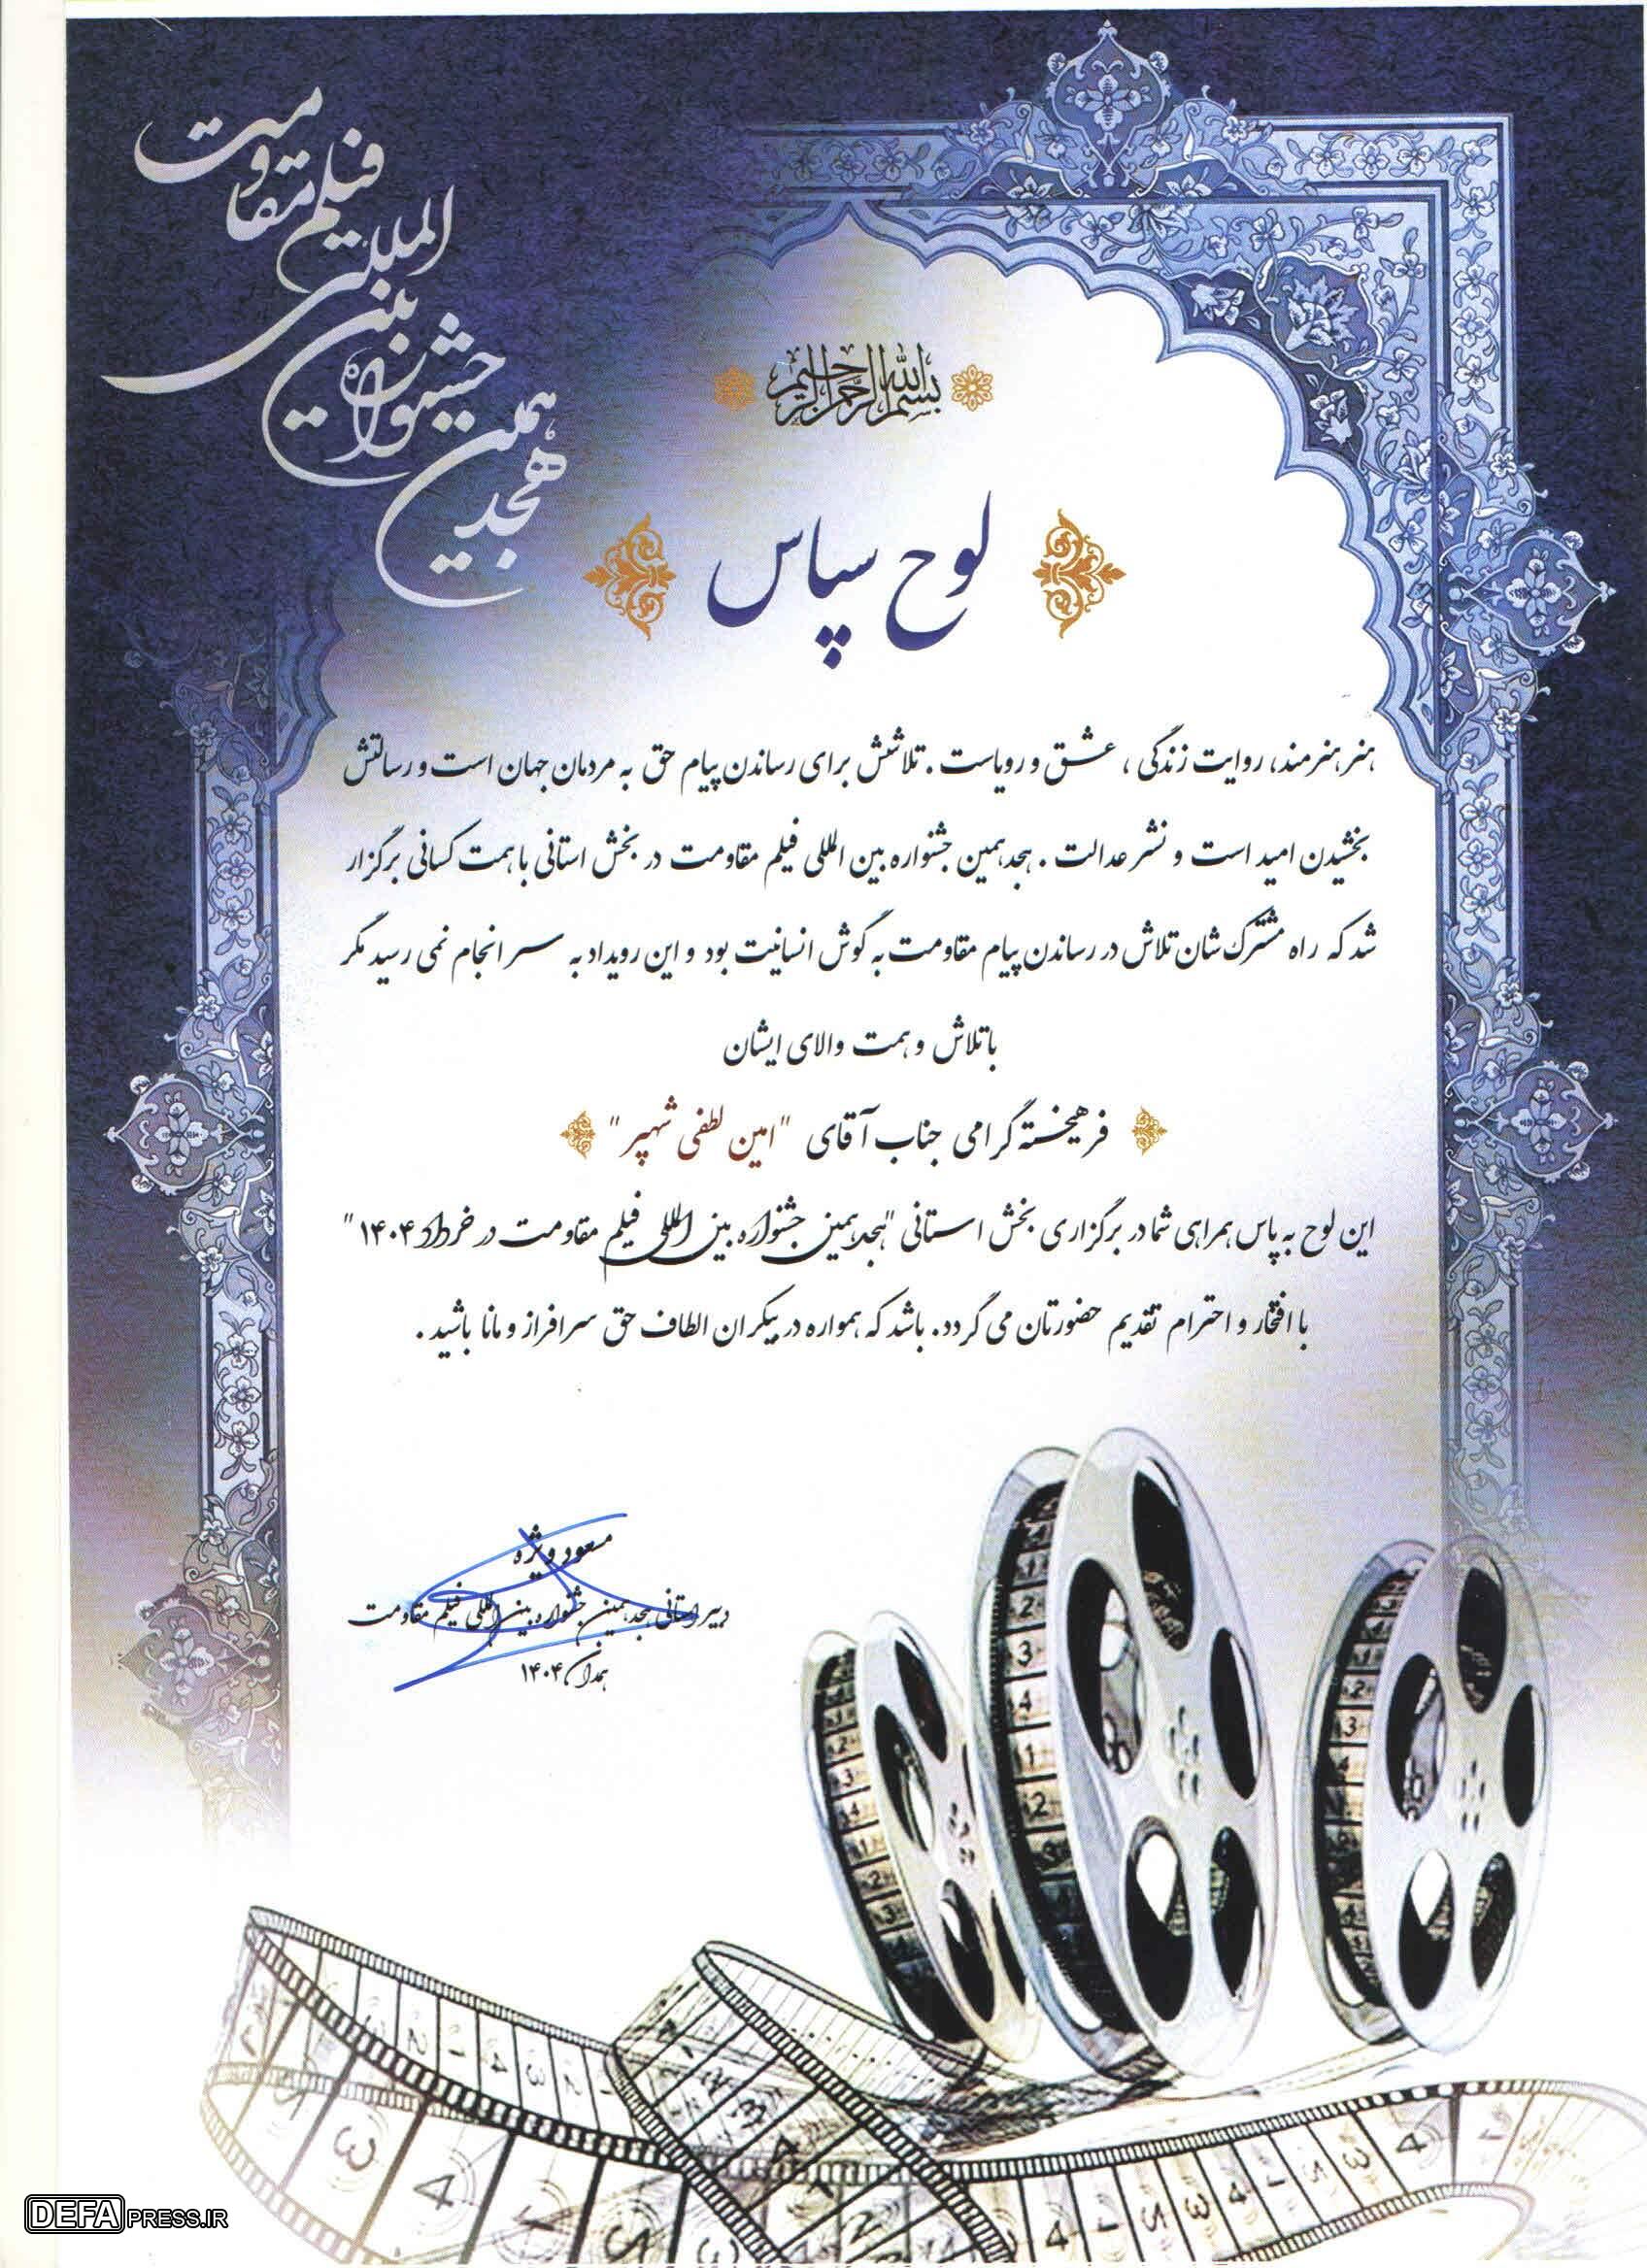 هجدهمین
جشنواره
بین المللی
فیلم
مقاومت
بسم الله الرحمن الرحیم
لوح سپاس
هنر هنرمند، روایت زندگی ، عشق و رویاست . تلاشش برای رساندن پیام حق به مردمان جهان است و رسالتش
بخشیدن امید است و نشر عدالت . هجدهمین جشنواره بین المللی فیلم مقاومت در بخش استانی با همت کسانی برگزار
شد که راه مشترک شان تلاش در رساندن پیام مقاومت به گوش انسانیت بود و این رویداد به سرانجام نمی رسید مگر
با تلاش و همت والای ایشان
فرهیخته گرامی جناب آقای "امین لطفی شهپر"
این لوح به پاس همراهی شما در برگزاری بخش استانی "هجدهمین جشنواره بین المللی فیلم مقاومت در خرداد ۱۴۰۴"
با افتخار و احترام تقدیم حضورتان می گردد. باشد که همواره در بیکران الطاف حق سرافراز و مانا باشید .
مسعود ویژه
دبیر استانی هجدهمین جشنواره بین المللی فیلم مقاومت
همدان ۱۴۰۴
DEFAPRESS.IR